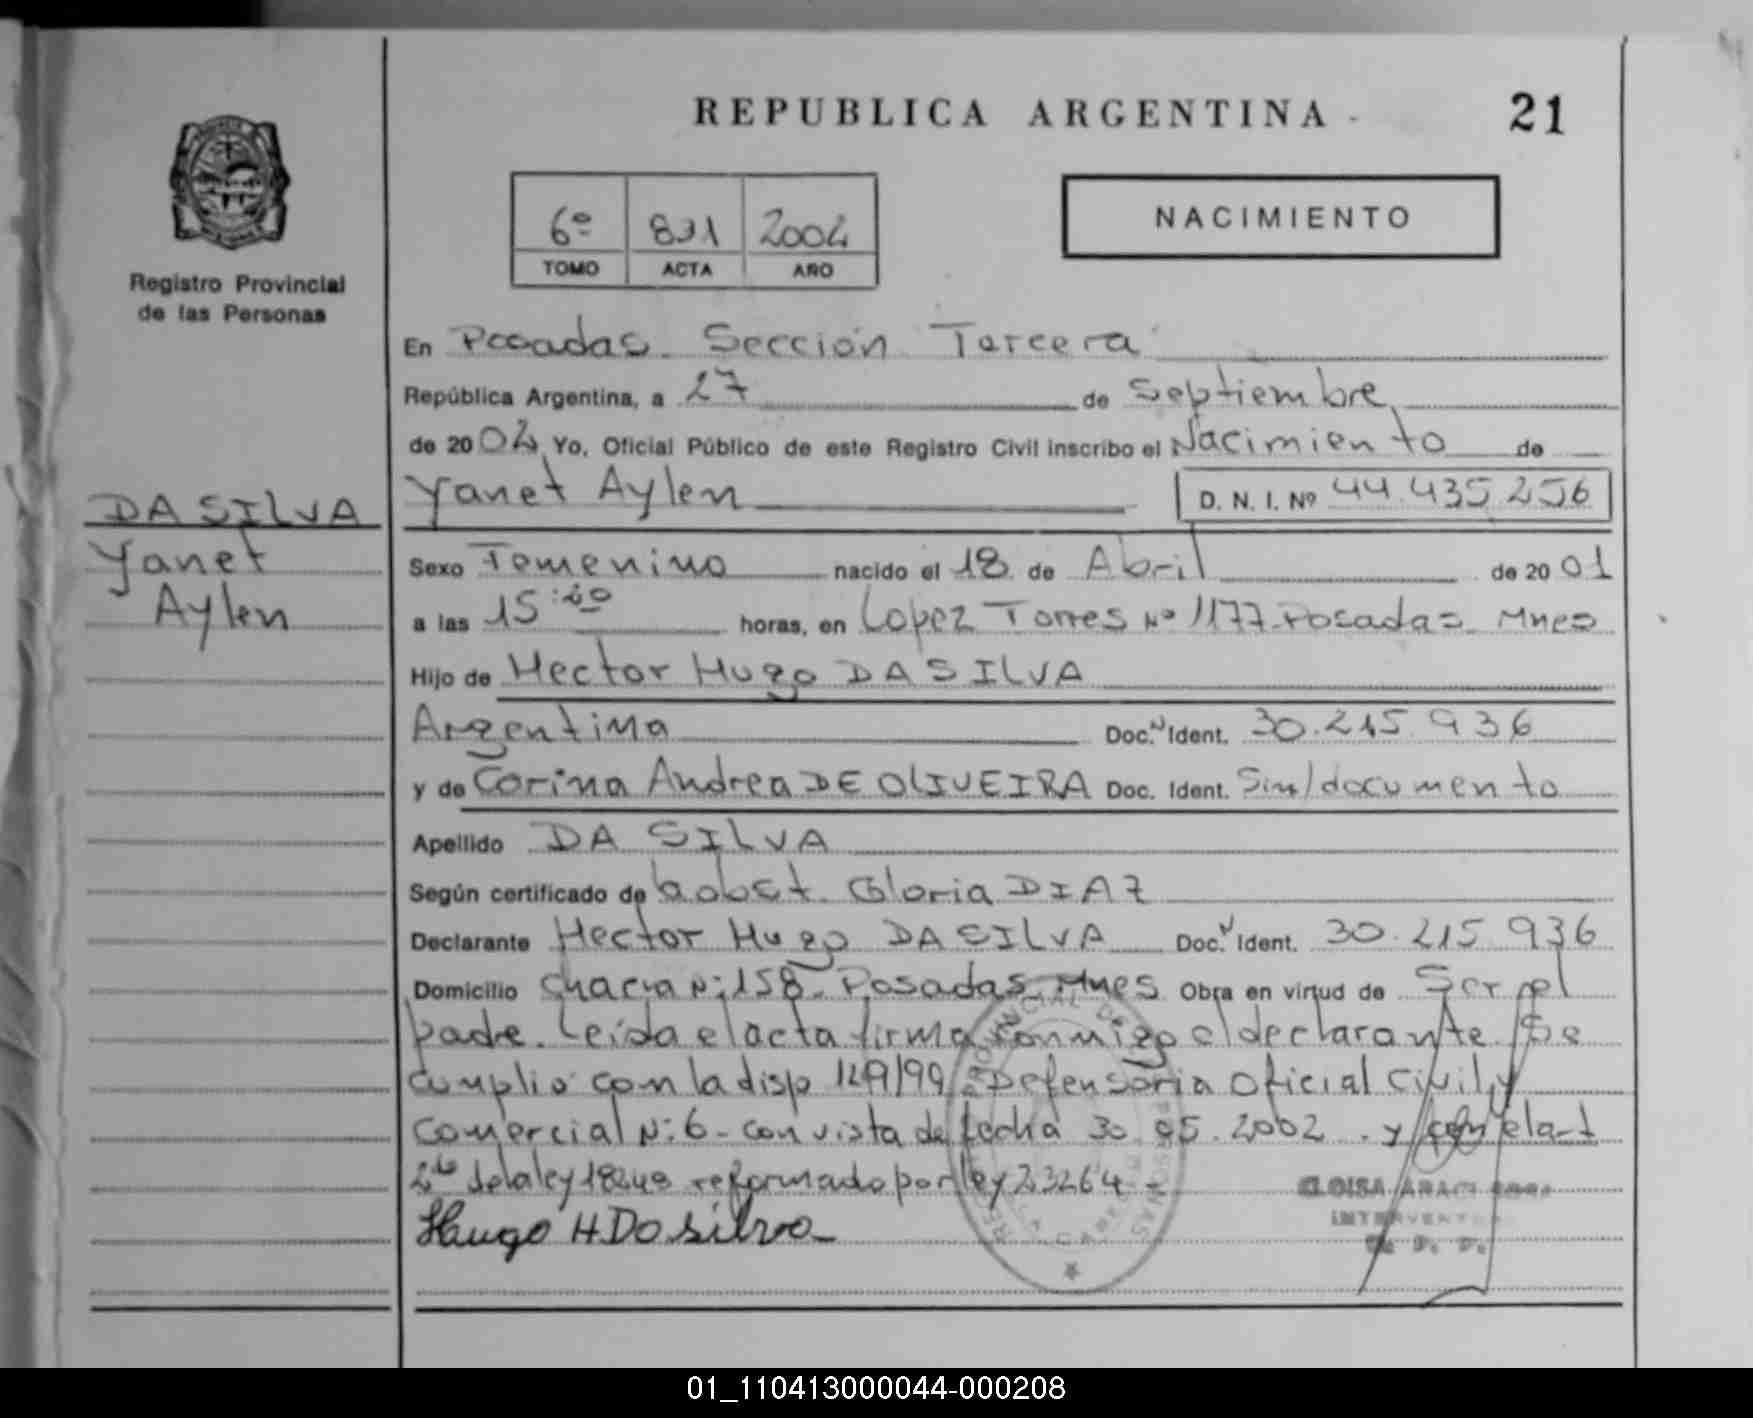 REPUBLICA ARGENTINA
21
6º 831 2004
TOMO ACTA AÑO
NACIMIENTO
Registro Provincial
de las Personas
En Posadas Sección Tercera
República Argentina, a 27 de Septiembre
de 2004 Yo, Oficial Público de este Registro Civil inscribo el Nacimiento de
Yanet Aylen D. N. I. Nº 44.435.256
DA SILVA
Yanet
Aylen
Sexo Femenino nacido el 18 de Abril de 2001
a las 15:20 horas, en Lopez Torres Nº 1177 Posadas Mnes
Hijo de Hector Hugo DA SILVA
Argentina Doc. N Ident. 30.215.936
y de Corina Andrea DE OLIVEIRA Doc. Ident. Sin/documento
Apellido DA SILVA
Según certificado de Obst. Gloria DIAZ
Declarante Hector Hugo DA SILVA Doc. N Ident. 30.215.936
Domicilio Chacra N: 158 Posadas Mnes Obra en virtud de Ser el
padre. Leída el acta firma conmigo el declarante. Se
cumplio con la disp 129/99 Defensoria Oficial Civil y
Comercial N: 6 - con vista de fecha 30.05.2002. y
de la ley 18248 reformado por ley 23264 -
Hugo H Da silva
REGISTRO PROVINCIAL DE LAS PERSONAS
ELOISA
INTERVENTORA
R. P. P.
01_110413000044-000208